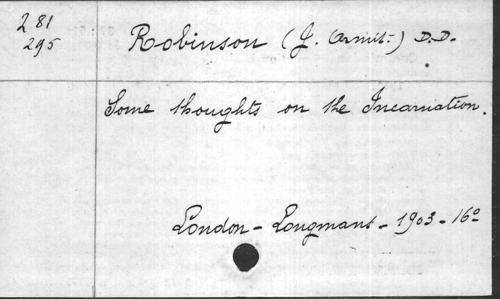 281
295
Robinson (J. Armit.) D.D.
Some thoughts on the Incarnation.
London - Longmans - 1903 - 16º